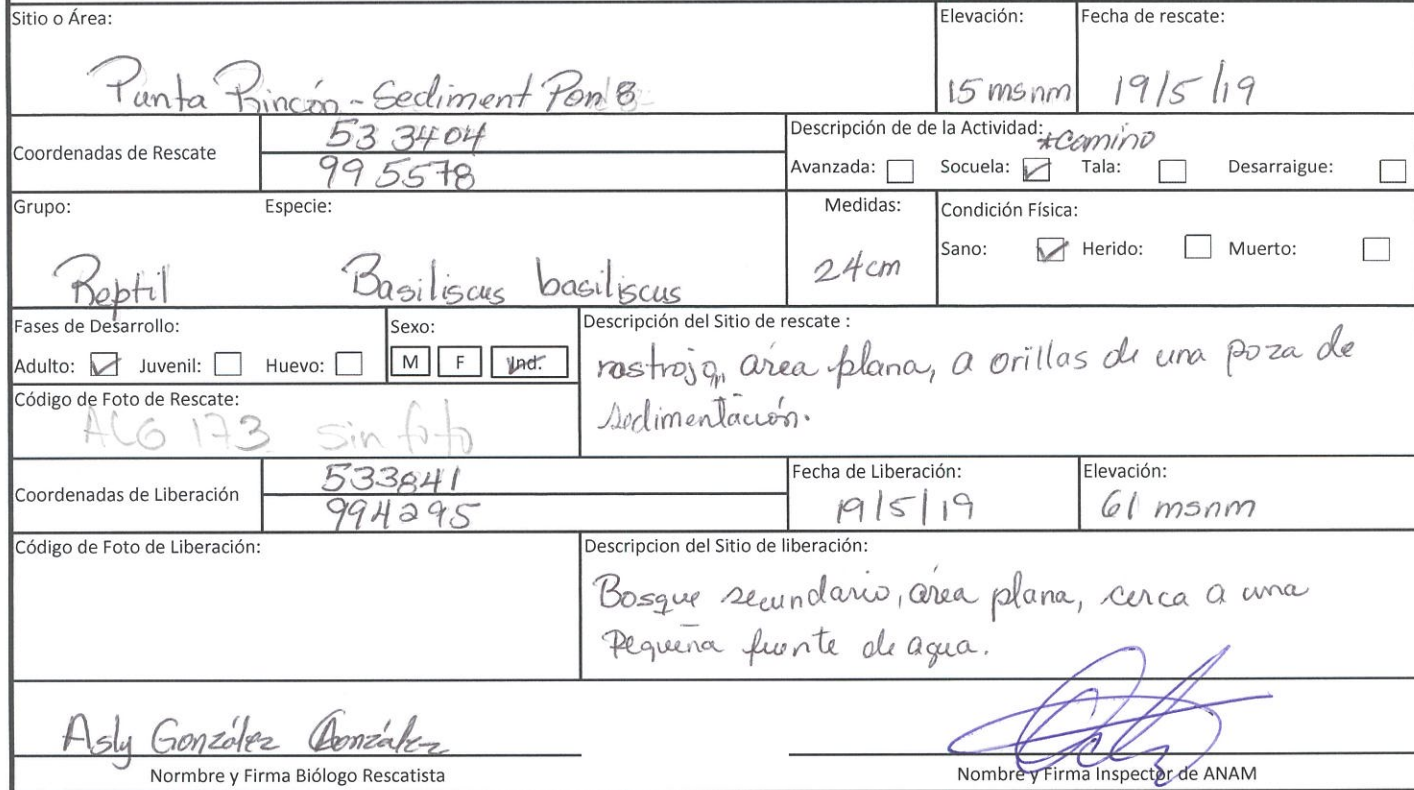 Sitio o Área:
Punta Rincón - Sediment Pon 8
Elevación:
15 msnm
Fecha de rescate:
19/5/19
Coordenadas de Rescate
533404
995578
Descripción de de la Actividad:
*Camino
Avanzada: Socuela: ✓ Tala: Desarraigue:
Grupo:
Reptil
Especie:
Basiliscus basiliscus
Medidas:
24cm
Condición Física:
Sano: ✓ Herido: Muerto:
Fases de Desarrollo:
Adulto: ✓ Juvenil: Huevo:
Sexo:
M F Ind.
Descripción del Sitio de rescate :
rastrojo, área plana, a orillas de una poza de
sedimentación.
Código de Foto de Rescate:
ALG 173 sin foto
Coordenadas de Liberación
533841
994295
Fecha de Liberación:
19/5/19
Elevación:
61 msnm
Código de Foto de Liberación:
Descripcion del Sitio de liberación:
Bosque secundario, área plana, cerca a una
Pequeña fuente de agua.
Asly González González
Normbre y Firma Biólogo Rescatista
Nombre y Firma Inspector de ANAM